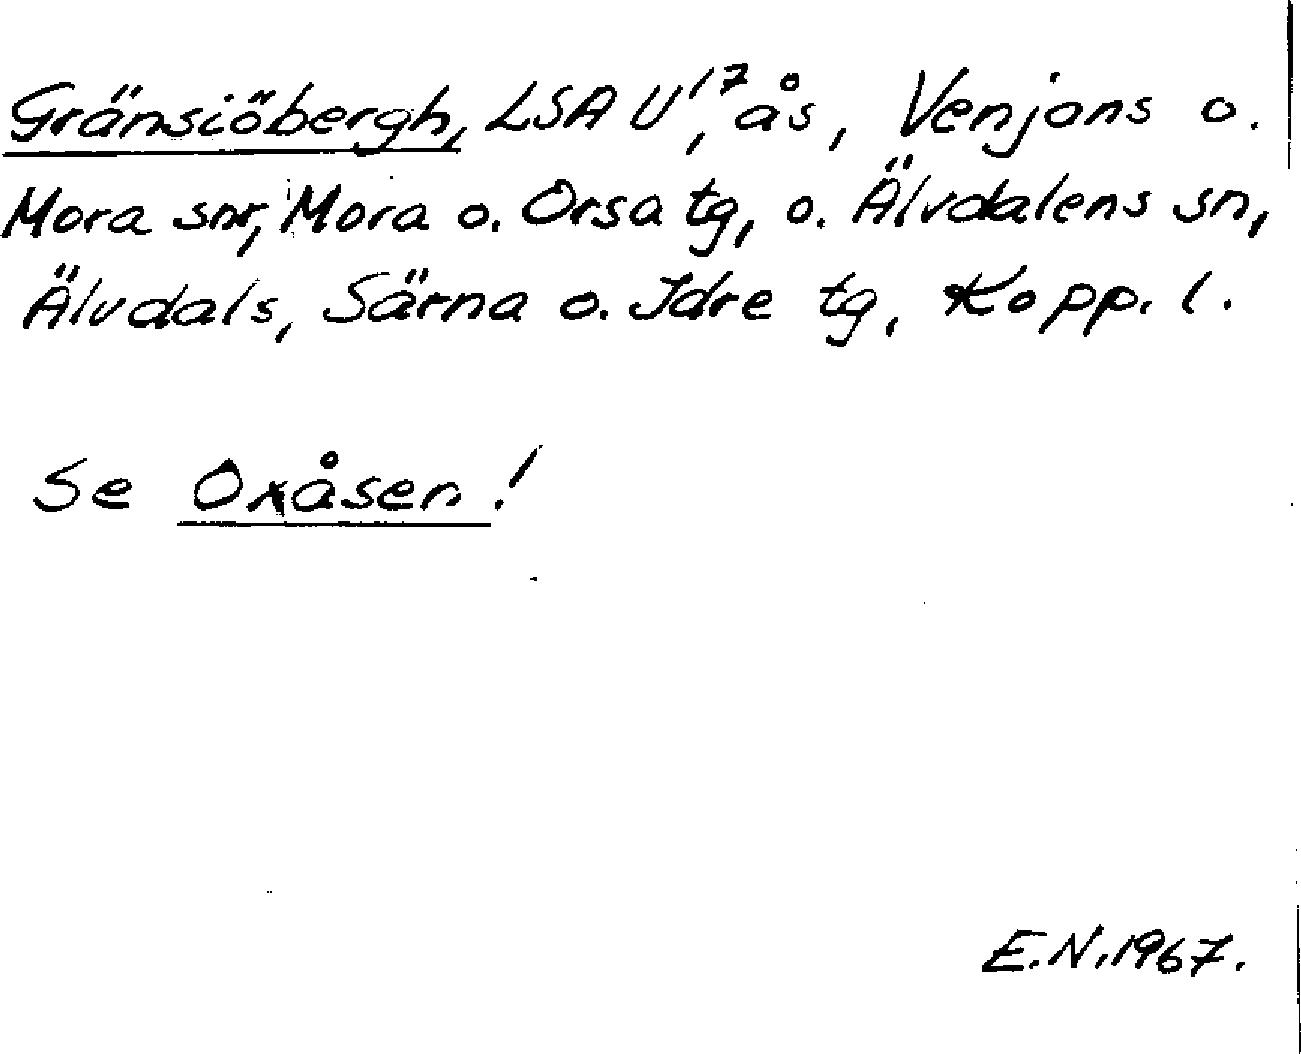 Gränsiöbergh, LSA U¹⁷, ås, Venjans o.
Mora snr, Mora o. Orsa tg, o. Älvdalens sn,
Älvdals, Särna o. Idre tg, Kopp. l.
Se Oxåsen!
E.N. 1967.